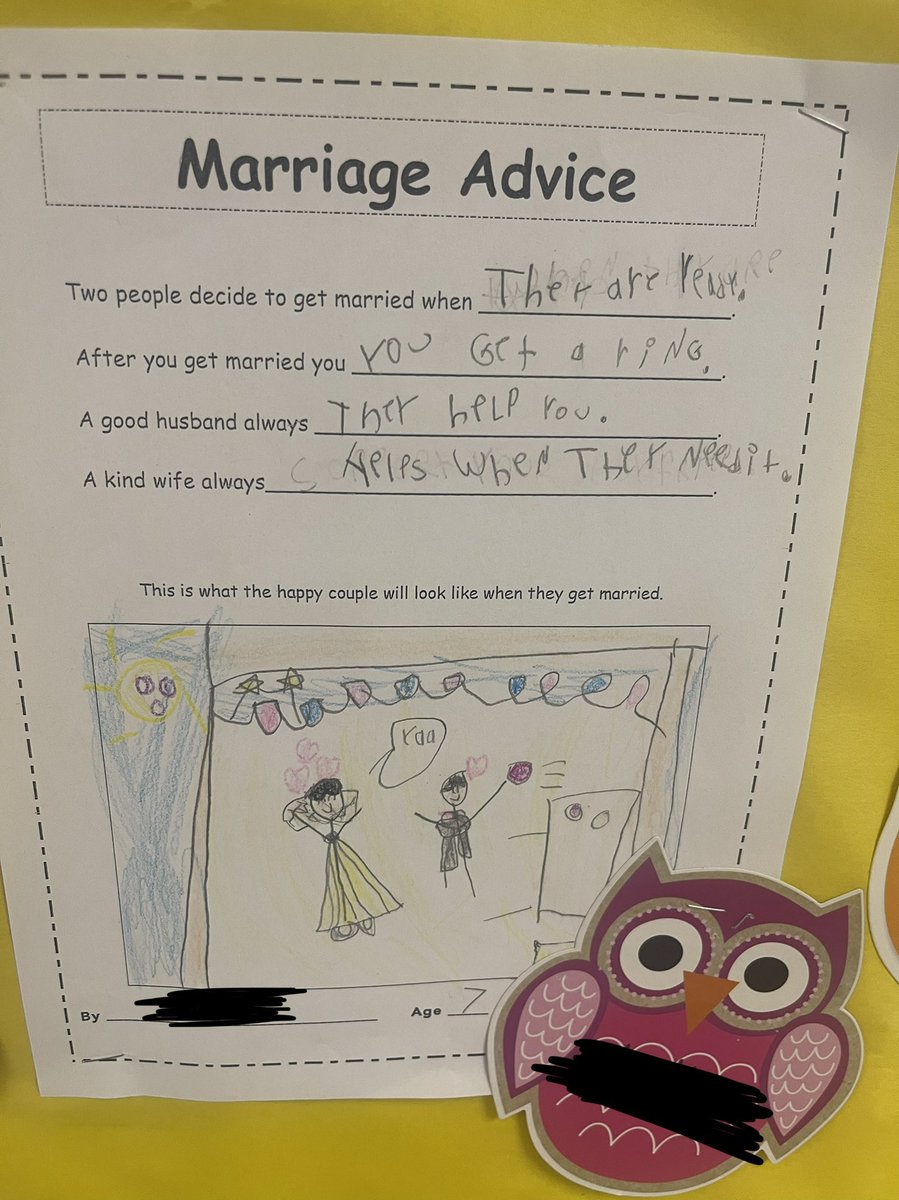 Marriage Advice
Two people decide to get married when They are ready.
After you get married you you Get a riNG.
A good husband always They helP you.
A kind wife always Helps When They Need it.
This is what the happy couple will look like when they get married.
yaa
By
Age 7